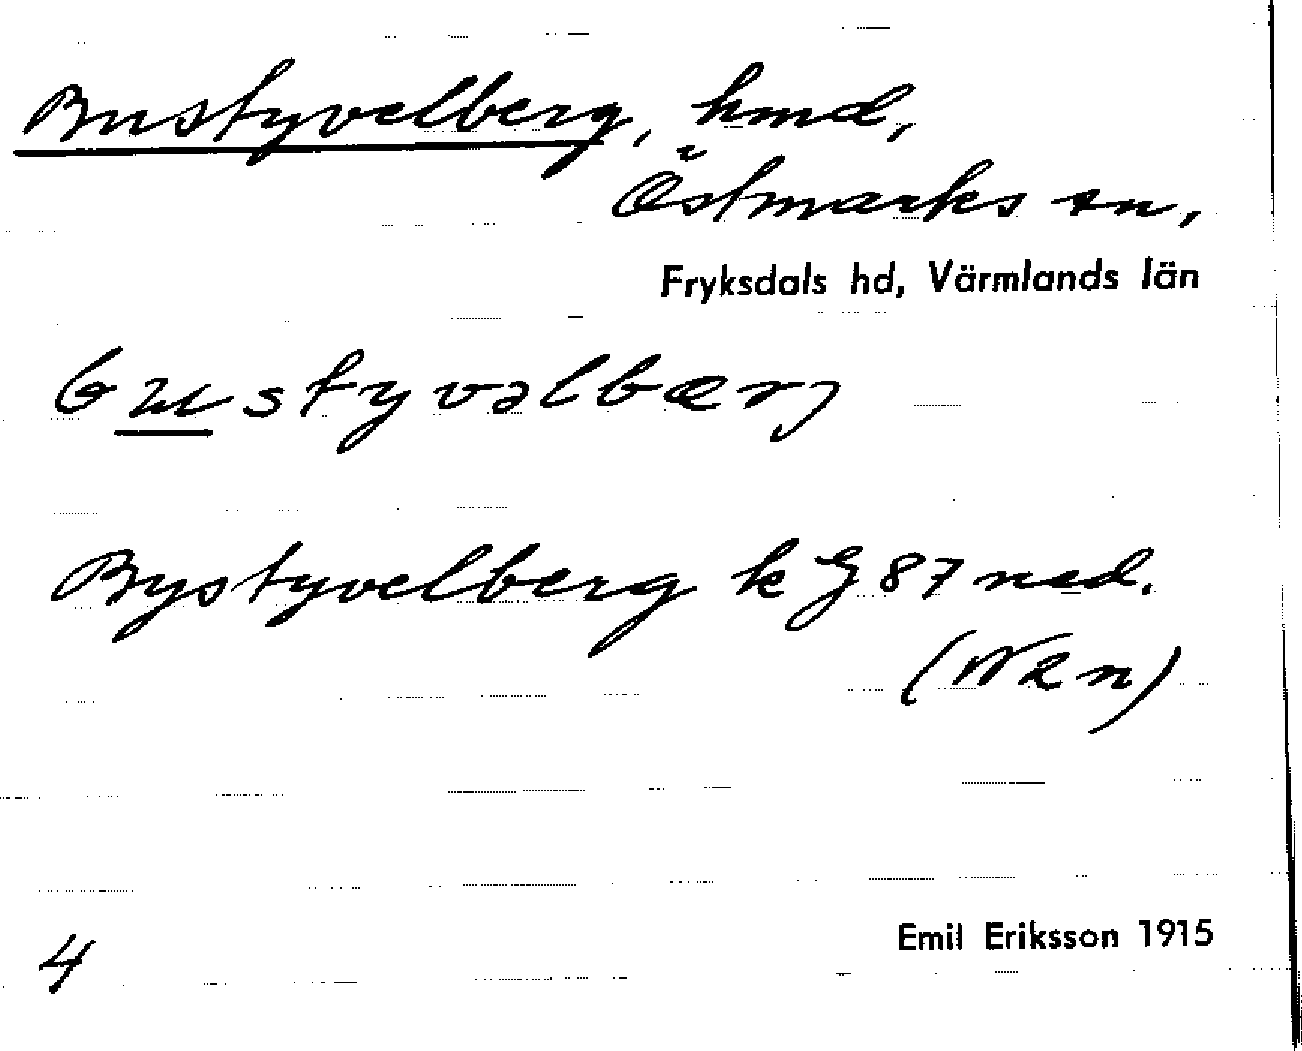 Bustyvelberg, hmd,
Östmarks sn,
Fryksdals hd, Värmlands län
bustyvəlbærj
Bystyvelberg k G 87 ned.
(WRn)
4
Emil Eriksson 1915